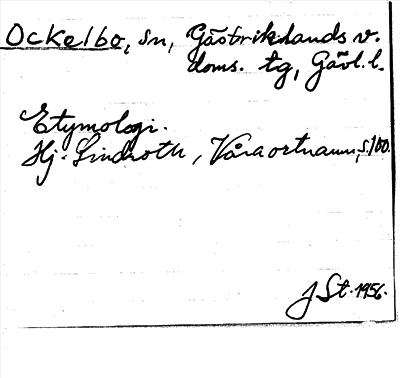 Ockelbo, sn, Gästriklands v.
doms. tg, Gävl. l.
Etymologi.
Hj. Lindroth, Våra ortnamn, s. 100.
J St. 1956.